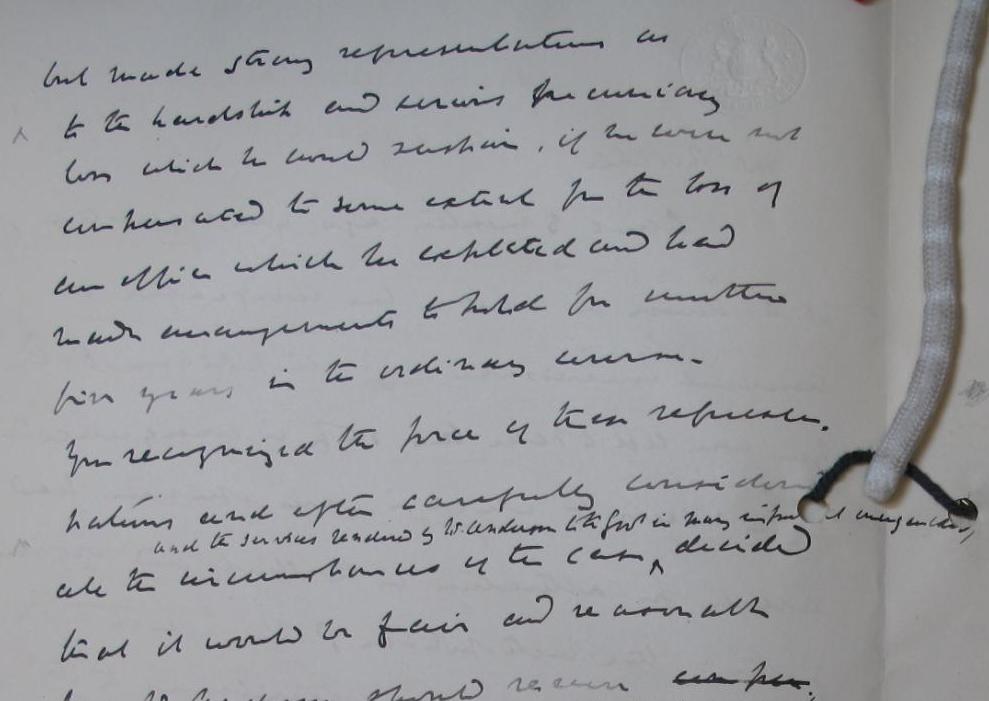 but made strong representations as
to the hardship and serious pecuniary
loss which he would sustain, if he were not
compensated to some extent for the loss of
an office which he expected and had
made arrangements to hold for another
five years in the ordinary course.
You recognized the force of these represen-
tations and after carefully considering
and the services rendered by Dr Anderson to the Govt in many important emergencies,
all the circumstances of the case ^ decided
that it would be fair and reasonable
should receive compen-